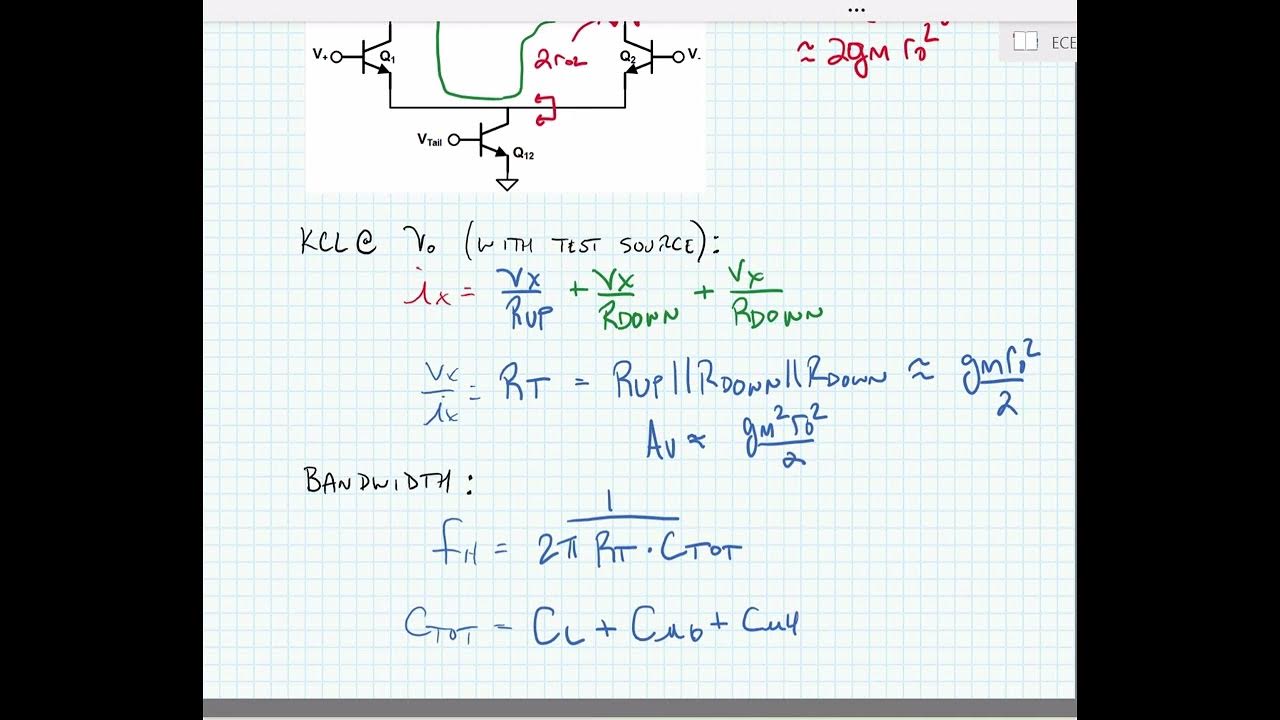 ...
ECE
≈ 2gm ro²
V+ Q1 2ro2 Q2 V-
VTail Q12
KCL @ Vo (WITH TEST SOURCE):
ix = Vx/RUP + Vx/RDOWN + Vx/RDOWN
Vx/ix = RT = RUP||RDOWN||RDOWN ≈ gmro²/2
Av ≈ gm²ro²/2
BANDWIDTH:
fH = 1/2π RT · CTOT
CTOT = CL + Cμ6 + Cμ4